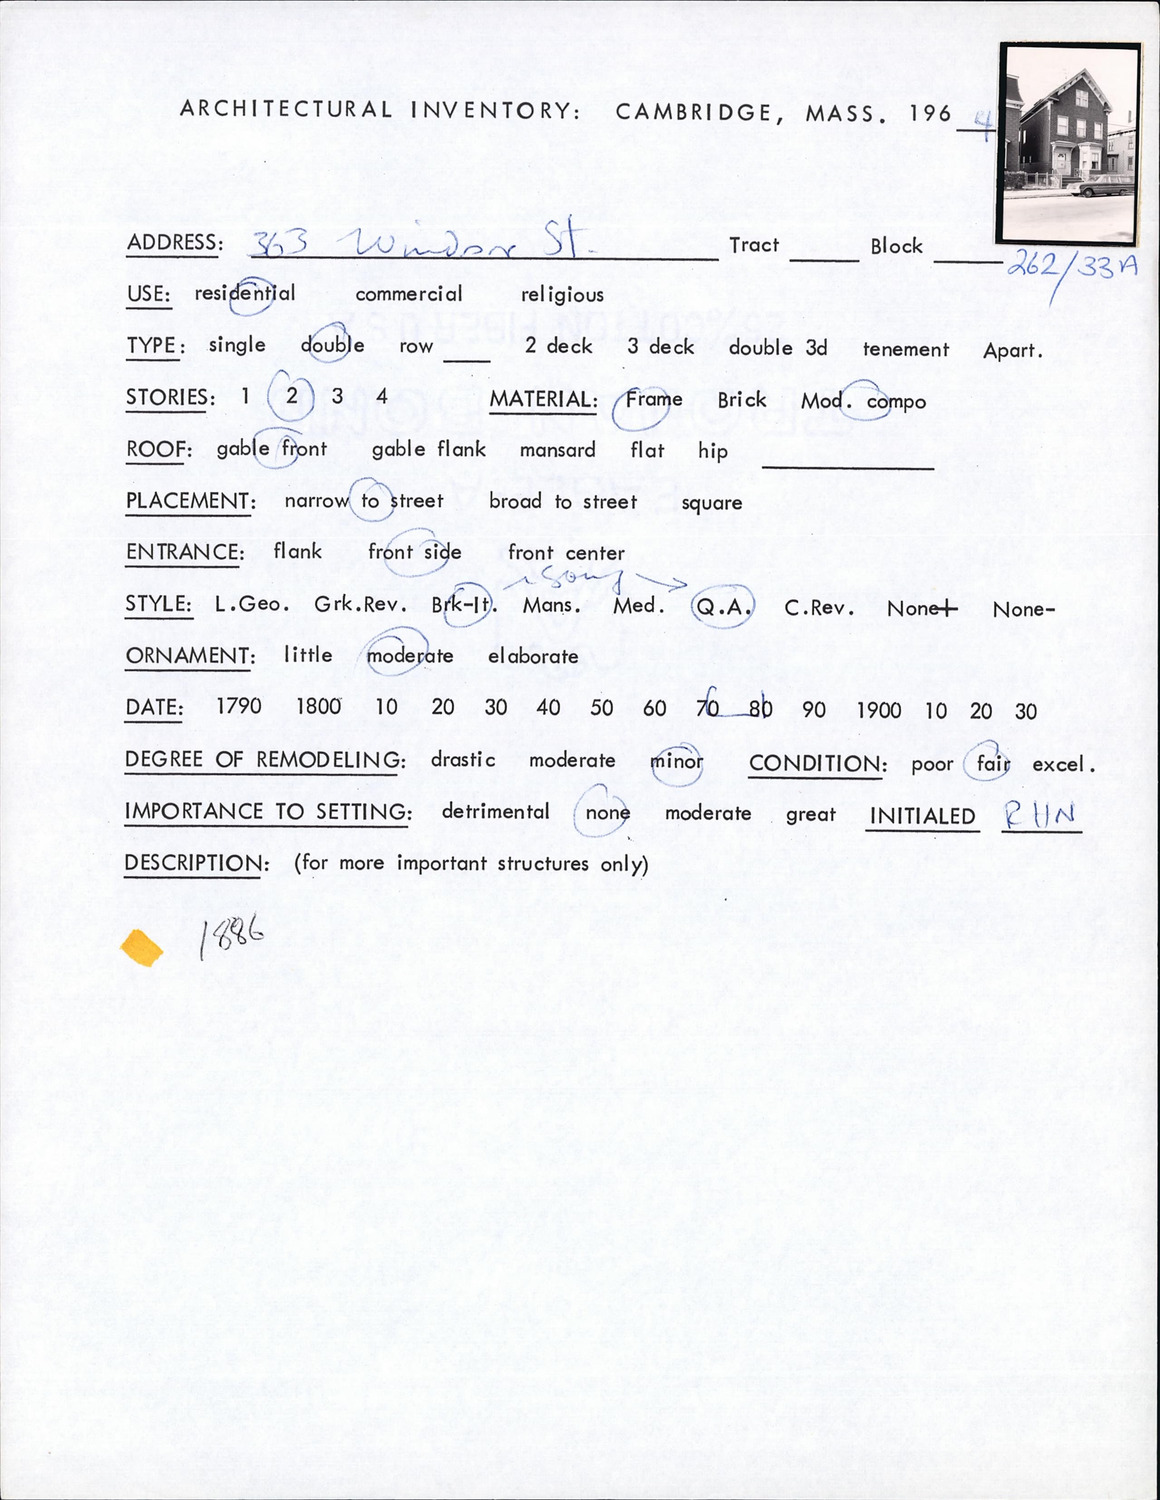 ARCHITECTURAL INVENTORY: CAMBRIDGE, MASS. 1964
ADDRESS: 363 Windsor St. Tract ____ Block ____
262/33A
USE: residential commercial religious
TYPE: single double row ____ 2 deck 3 deck double 3d tenement Apart.
STORIES: 1 2 3 4 MATERIAL: Frame Brick Mod. compo
ROOF: gable front gable flank mansard flat hip ____
PLACEMENT: narrow to street broad to street square
ENTRANCE: flank front side front center
STYLE: L.Geo. Grk.Rev. Brk-It. Mans. Med. Q.A. C.Rev. None+ None-
ORNAMENT: little moderate elaborate
DATE: 1790 1800 10 20 30 40 50 60 70 80 90 1900 10 20 30
DEGREE OF REMODELING: drastic moderate minor CONDITION: poor fair excel.
IMPORTANCE TO SETTING: detrimental none moderate great INITIALED RHN
DESCRIPTION: (for more important structures only)
1886